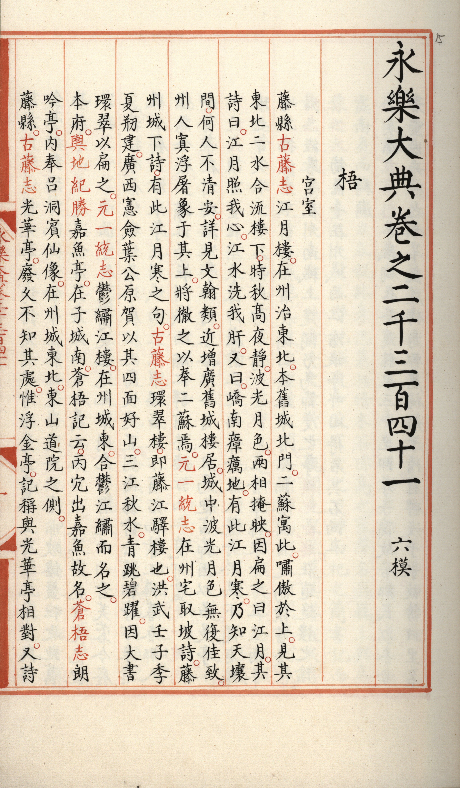 永樂大典卷之二千三百四十一 六模
梧
宫室
藤縣古藤志江月樓在州治東北本舊城北門二蘇寓此嘯傲於上見其
東北二水合流樓下時秋髙夜靜波光月色兩相掩映因扁之曰江月其
詩曰江月照我心江水洗我肝又曰嶠南瘴癘地有此江月寒乃知天壤
間何人不清安詳見文翰類近增廣舊城樓居城中波光月色無復佳致
州人寘浮屠象于其上將徹之以奉二蘇焉元一統志在州宅取坡詩藤
州城下詩有此江月寒之句古藤志環翠樓即藤江驛樓也洪武壬子季
夏剏建廣西憲僉葉公原賀以其四面好山三江秋水青跳碧躍因大書
環翠以扁之元一統志鬱繡江樓在州城東合鬱江繡而名之
本府輿地紀勝嘉魚亭在子城南蒼梧記云丙穴出嘉魚故名蒼梧志朗
吟亭内奉吕洞賓仙像在州城東北東山道院之側
藤縣古藤志光華亭廢久不知其處惟浮金亭記稱與光華亭相對又詩